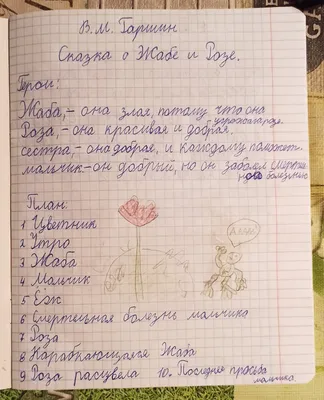 В. М. Гаршин
Сказка о Жабе и Розе.
Герои:
Жаба,- она злая, потому что она
угрожала розе.
Роза,- она красивая и добрая.
сестра,- она добрая, и каждому поможет.
мальчик- он добрый, но он заболел смертельно
болезнью
План:
1 Цветник
2 Утро
3 Жаба
4 Мальчик
5 Ёж
6 Смертельная болезнь мальчика
7 Роза
8 Карабкающаяся Жаба
9 Роза расцвела 10. Последняя просьба
мальчика.